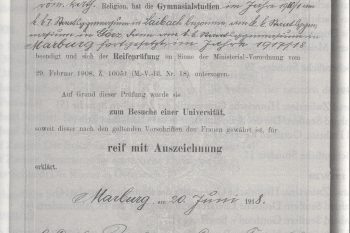 röm. kath. Religion, hat die Gymnasialstudien im Jahre 1910/11 am
k. k. I. Staatsgymnasium in Laibach begonnen, am k. k. Staatsgym-
nasium in Görz, dann am k. k. Staatsgymnasium in
Marburg fortgesetzt, im Jahre 1917/18
beendigt und sich der Reifeprüfung im Sinne der Ministerial-Verordnung vom
29. Februar 1908, Z. 10051 (M.-V.-Bl. Nr. 18), unterzogen.
Auf Grund dieser Prüfung wurde sie
zum Besuche einer Universität,
soweit dieser nach den geltenden Vorschriften den Frauen gewährt ist, für
reif mit Auszeichnung
erklärt.
Marburg, am 20. Juni 1918.